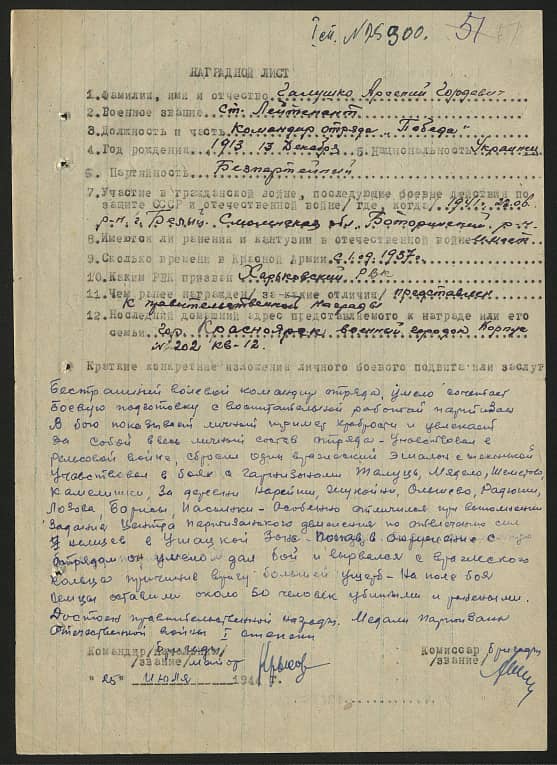 I см. № 25900. 51
НАГРАДНОЙ ЛИСТ
1. Фамилия, имя и отчество Галушко Арсений Гордеевич
2. Военное звание Ст. Лейтенант
3. Должность и часть Командир отряда „Победа"
4. Год рождения 1913 13 Декабря 5. Национальность Украинец
6. Партийность Безпартейний
7. Участие в гражданской войне, последующие боевые действия по
защите СССР и отечественной войне/ где, когда/ 1941 г.
р-н г. Смоленская обл. р-н
8. Имеются ли ранения и кантузии в отечественной войне имеет
9. Сколько времени в Красной Армии С 1.09.1937 г.
10. Каким РВК призван Харьковский РВК
11. Чем ранее награжден/ за какие отличия/ представлен
к правительственной награды
12. Последний домашний адрес представляемого к награде или его
семьи гор. Красноярск военной городок Корпус
№ 202 кв-12.
Краткие конкретные изложения личного боевого подвига или заслуг
Бестрашний боевой командир отряда, умело сочетает
боевую подготовку с воспитательной работай партизан
В бою показывает личный пример храбрости и увлекает
за собой весь личный состав отряда - Учавствовал в
Рельсовой войне, сбросил один вражеский эшалон с техникой
Учавствовал в боях с гарнизонами Жалуцы, Мядело,
Камелишки, За деревни
Лозова, Борисы, - Особенно отличился при выполнении
задания Центра Партизанского движения по отвлечению сил
у немцев в Ушацкой зоне. Попав в окружение с
отрядом он умело дал бой и вырвался с вражеского
кольца причинив врагу большей ущерб - На поле боя
немцы оставили около 50 человек убитыми и ранеными.
Достоен правительственной награды. Медали Партизан
Отечественной войны I степени
Командир бригады Комиссар бригады
/звание/ майор /звание/
"25" июля 1944 г.